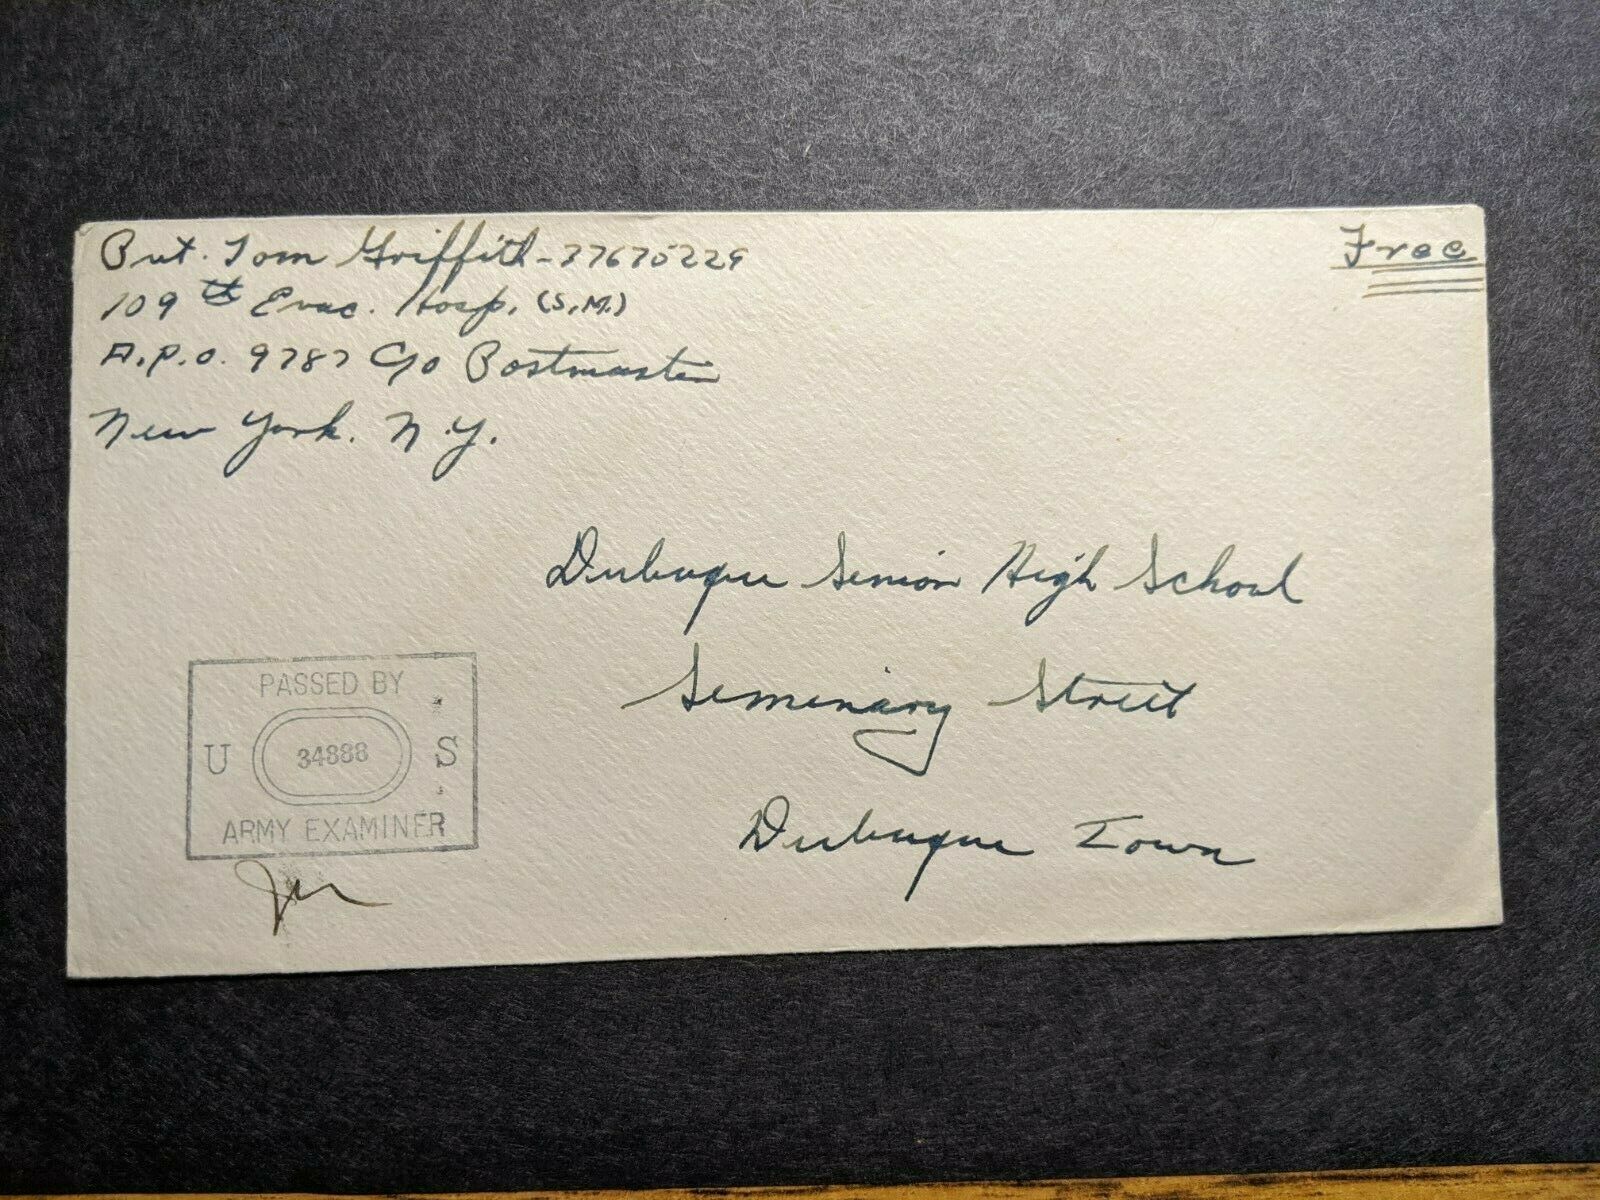 Pvt. Tom Griffith - 37675229
109th Evac. Hosp. (S.M.)
A.P.O. 9787 C/o Postmaster
New York. N.Y.
Free
Dubuque Senior High School
Seminary Street
Dubuque Iowa
PASSED BY
U 34888 S
ARMY EXAMINER